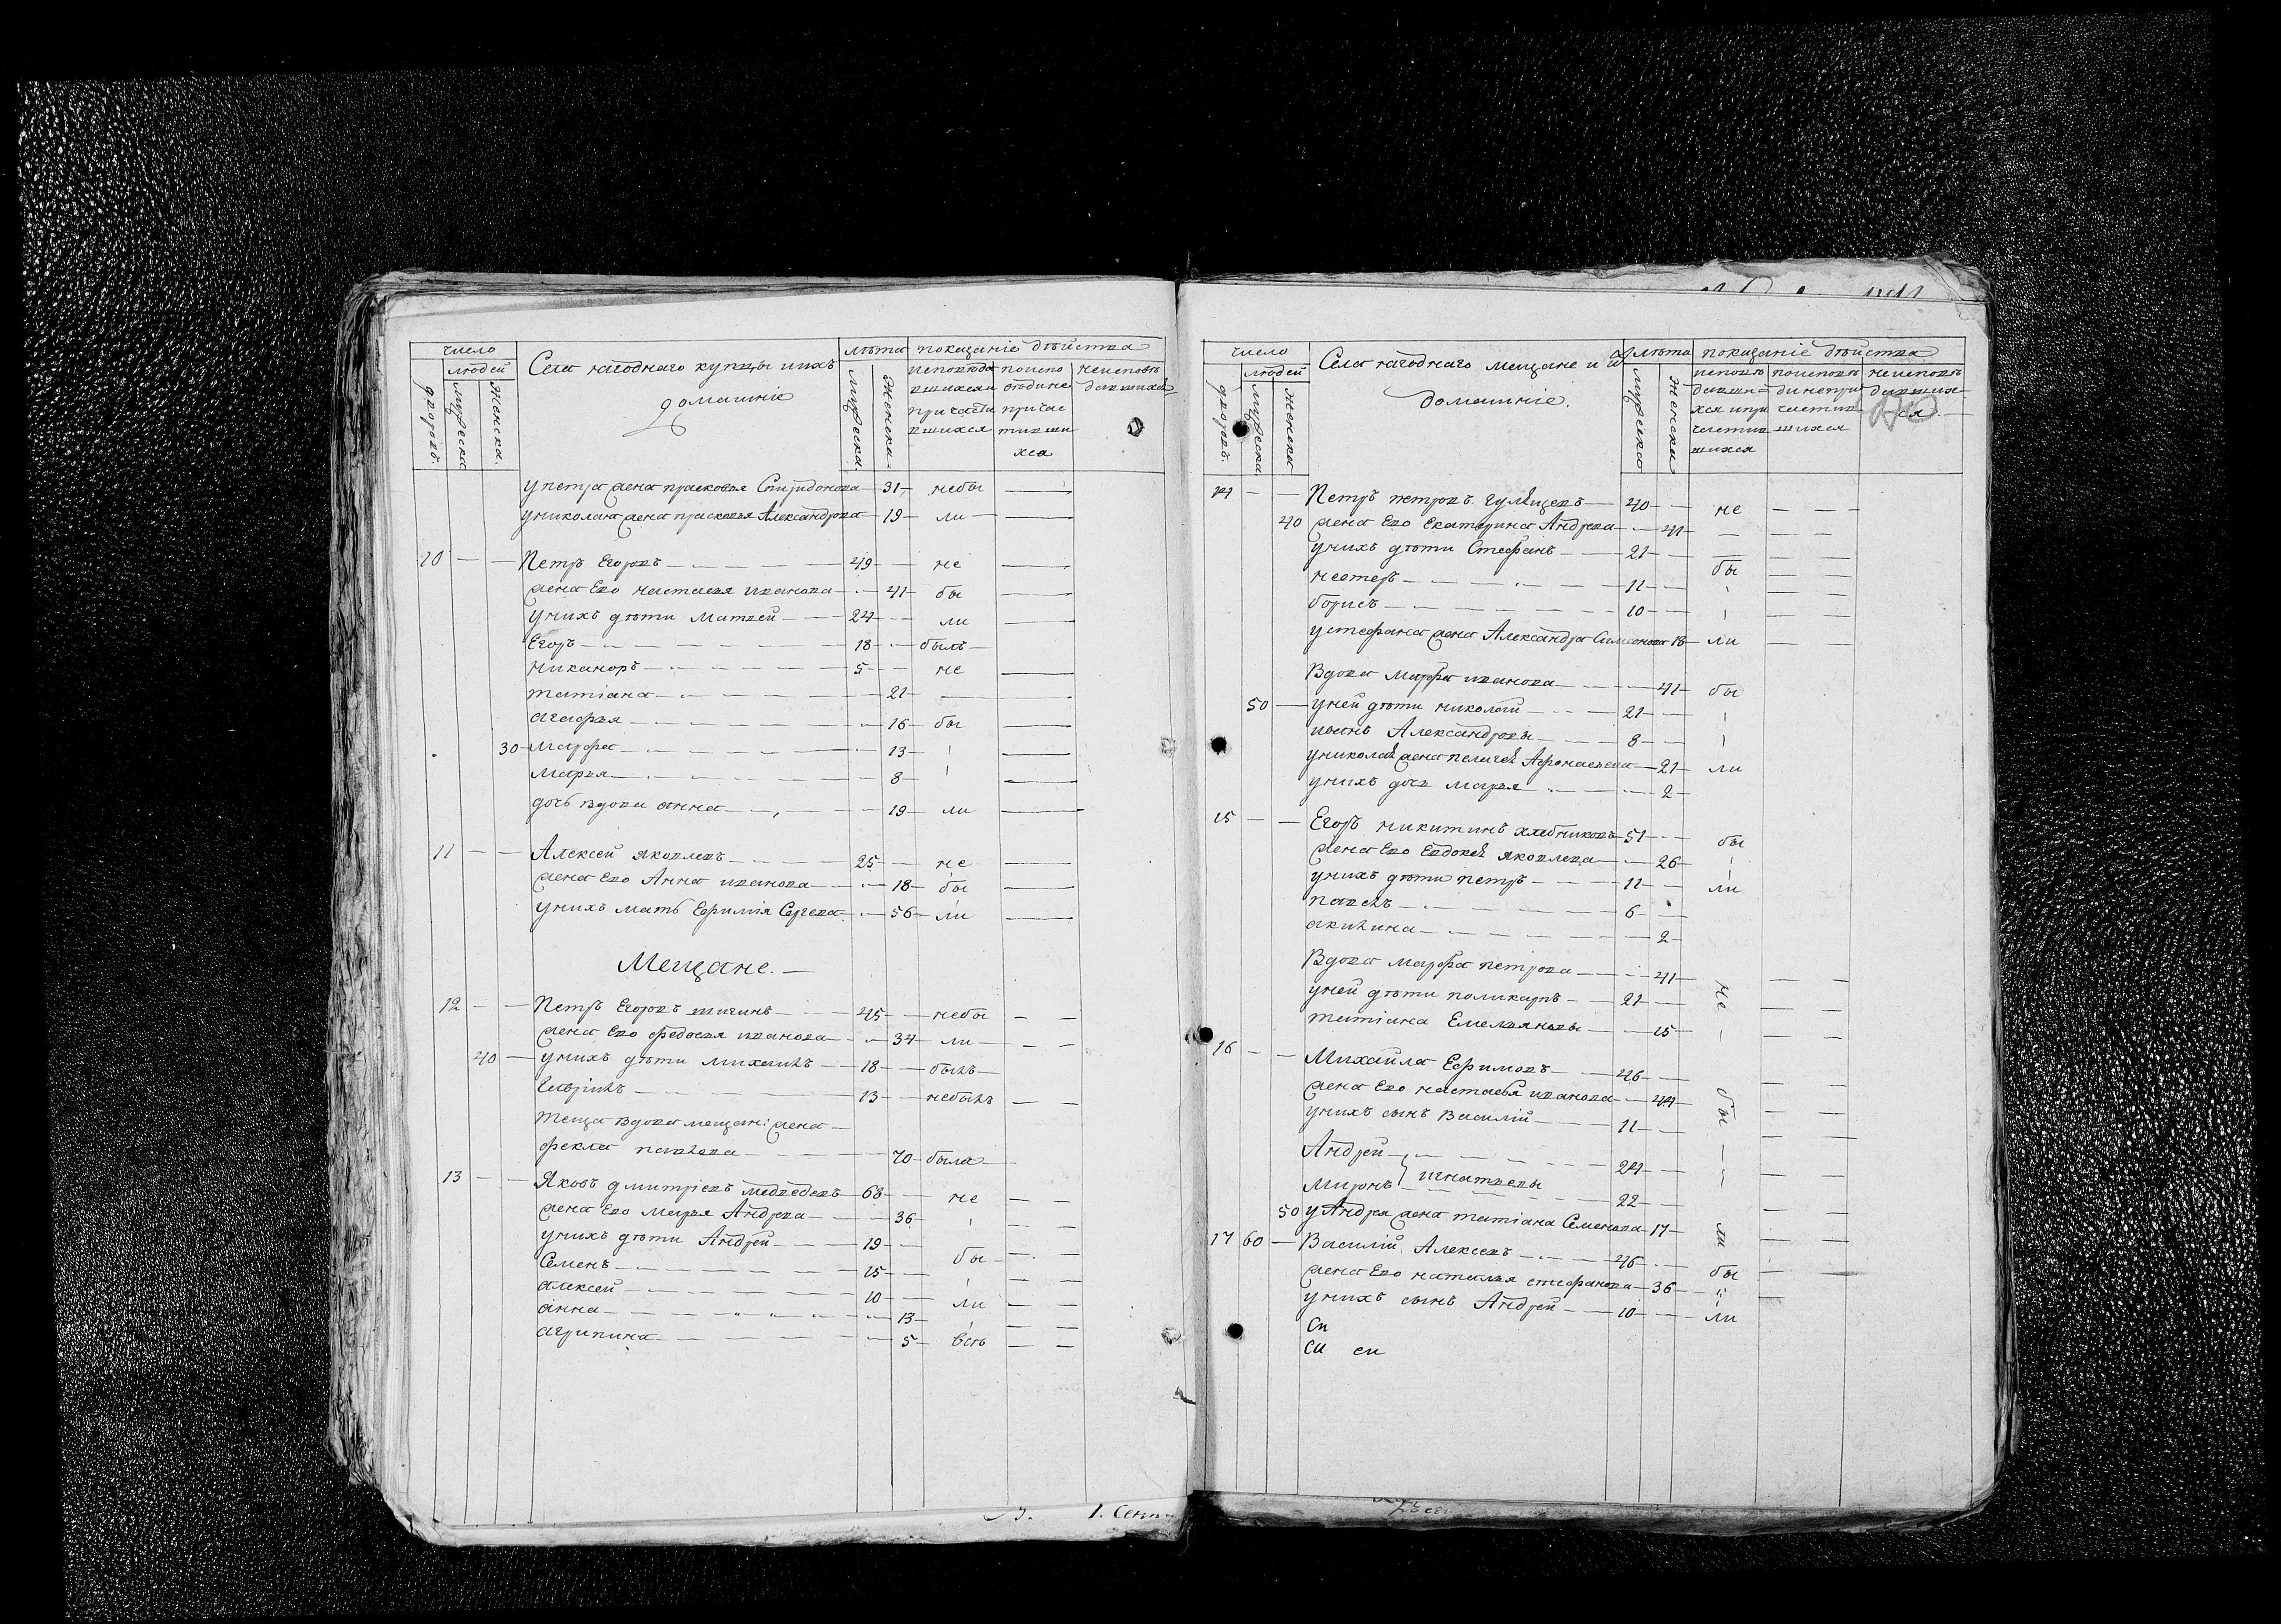 число
людей
дворовъ.
мужеска
Женска.
Села нагоднаго купцы ихъ
домашніе
лѣта
мужеска.
Женска.
показаніе дѣйства
у петра жена прасковья Спиридонова — 31 — небы
у николая жена прасковья Александрова — 19 — ли
10 — — Петръ Егоровъ — 49 — не
жена Ево настасья иванова — 41 — бы
у нихъ дѣти матвей — 24 — ли
Егоръ — 18 — былъ
никаноръ — 5 — не
татіана — 21
агафья — 16 — бы
30 — марфа — 13
марья — 8
дочь вдова анна — 19 — ли
11 — — Алексей яковлевъ — 25 — не
жена Ево Анна иванова — 18 — бы
у нихъ мать Ефимія Сергева — 56 — ли
Мещане. —
12 — — Петръ Егоровъ шигинъ — 45 — небы
жена Ево федосья иванова — 34 — ли
40 — у нихъ дѣти михаилъ — 18 — былъ
Гаврілъ — 13 — небылъ
теща вдова мещан: жена —
фекла павлова — 70 — была
13 — — Яковъ дмитріевъ медведевъ — 68 — не
жена Ево марья Андрева — 36
у нихъ дѣти Андрей — 19
Семенъ — 15 — бы
алексей — 10
анна — 13 — ли
агрипина — 5
число
людей
дворовъ.
мужеска
женска
Села нагоднаго мещане и
домашніе.
лѣта
мужеска
Женска
показаніе дѣйства
14 — — Петръ петровъ — 40 — не
40 жена Ево Екатерина Андрева — 41
у нихъ дѣти Стефанъ — 21 — бы
нестеръ — 11
борисъ — 10
у стефана жена Александра Симеонова 18 — ли
Вдова марфа иванова — 41 — бы
50 — у ней дѣти николай — 21
Александровы — 8
у николая жена пелагея Афонасьева — 21 — ли
у нихъ дочь марья — 2
15 — — Егоръ никитинъ хлебниковъ — 51 — бы
жена Ево Евдокея яковлева — 26
у нихъ дѣти петръ — 11 — ли
павелъ — 6
акилина — 2
Вдова марфа петрова — 41 — не
у ней дѣти поликарпъ — 21
татіана Емельяновы — 15
16 — — Михайла Ефимовъ — 46
жена Ево настасья иванова — 44 — бы
у нихъ сынъ Василій — 11
Андрей — 24
миронъ } игнатьевы — 22
50 у Андрея жена татіана Семенова — 17 — ли
17 60 — Василій Алексеевъ — 46 — бы
жена Ево наталья стефанова — 36
у нихъ сынъ Андрей — 10 — ли
си
си си